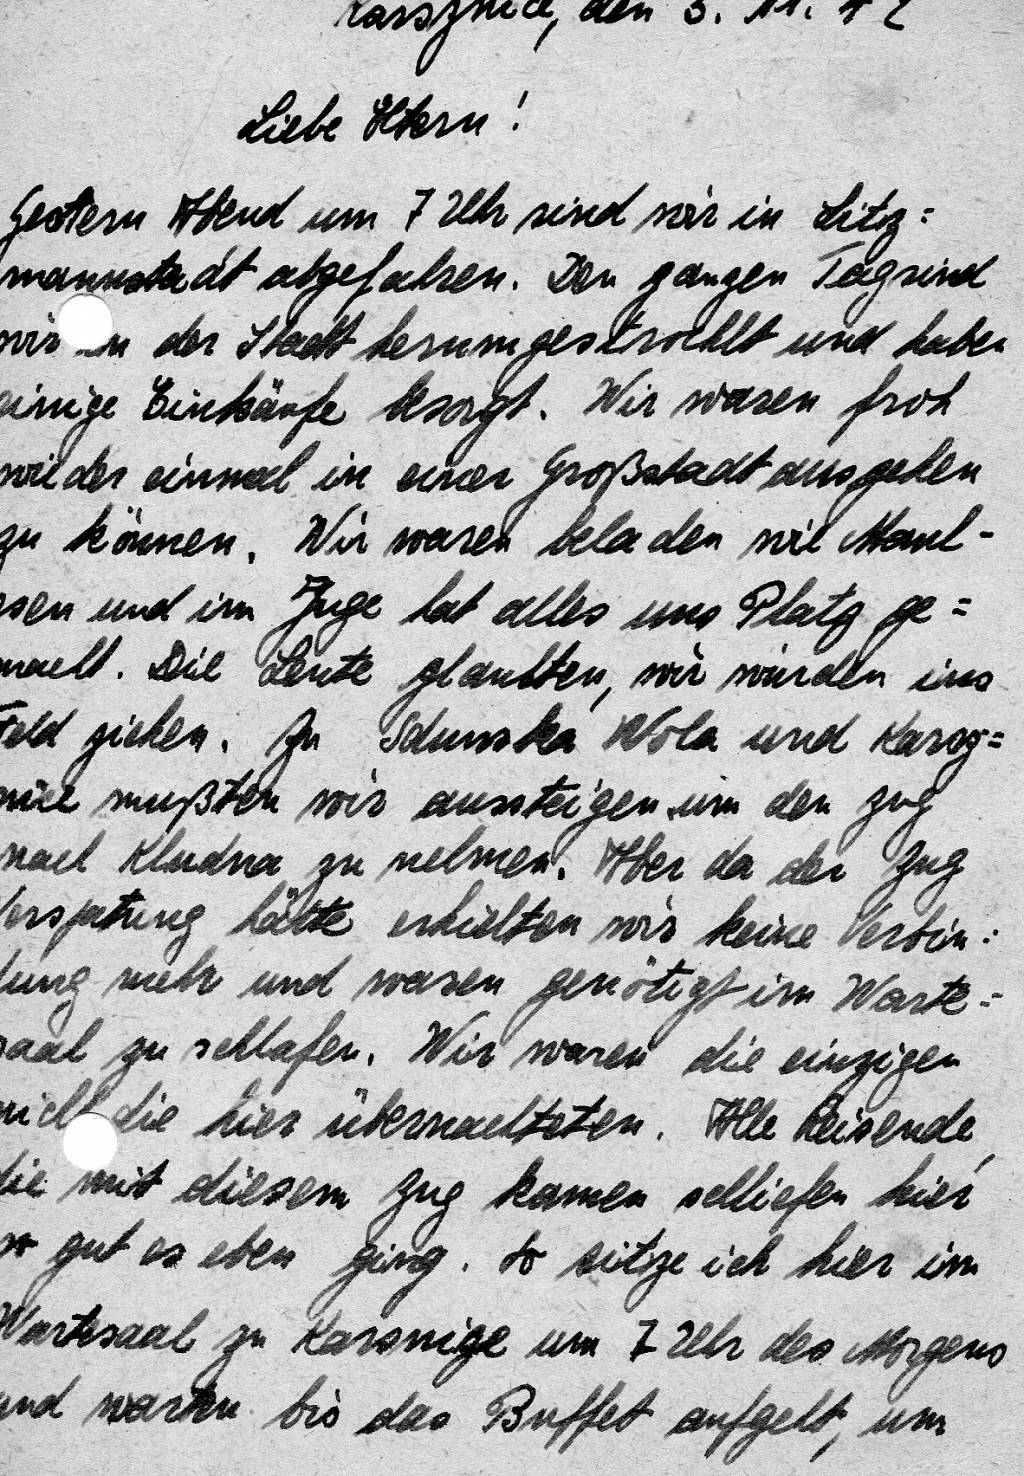 Karsznice, den 3. 11. 42
Liebe Eltern!
Gestern Abend um 7 Uhr sind wir in Litz=
mannstadt abgefahren. Den ganzen Tag sind
wir in der Stadt herumgestrochlt und haben
einige Einkäufe besorgt. Wir waren froh
wieder einmal in einer Großstadt ausgehen
zu können. Wir waren beladen wie Maul-
esen und im Zuge hat alles uns Platz ge=
macht. Die Leute glaubten, wir würden ins
Feld ziehen. In Sdunska Wola und Karsz=
nice mußten wir aussteigen um den Zug
nach Kludna zu nehmen. Aber da der Zug
Verspätung hatte erhielten wir keine Verbin=
dung mehr und waren genötigt im Warte=
saal zu schlafen. Wir waren die einzigen
nicht die hier übernachteten. Alle Reisende,
die mit diesem Zug kamen schliefen hier
so gut es eben ging. So sitze ich hier im
Wartesaal zu Karsnize um 7 Uhr des Morgens
und warten bis das Buffet aufgeht, um